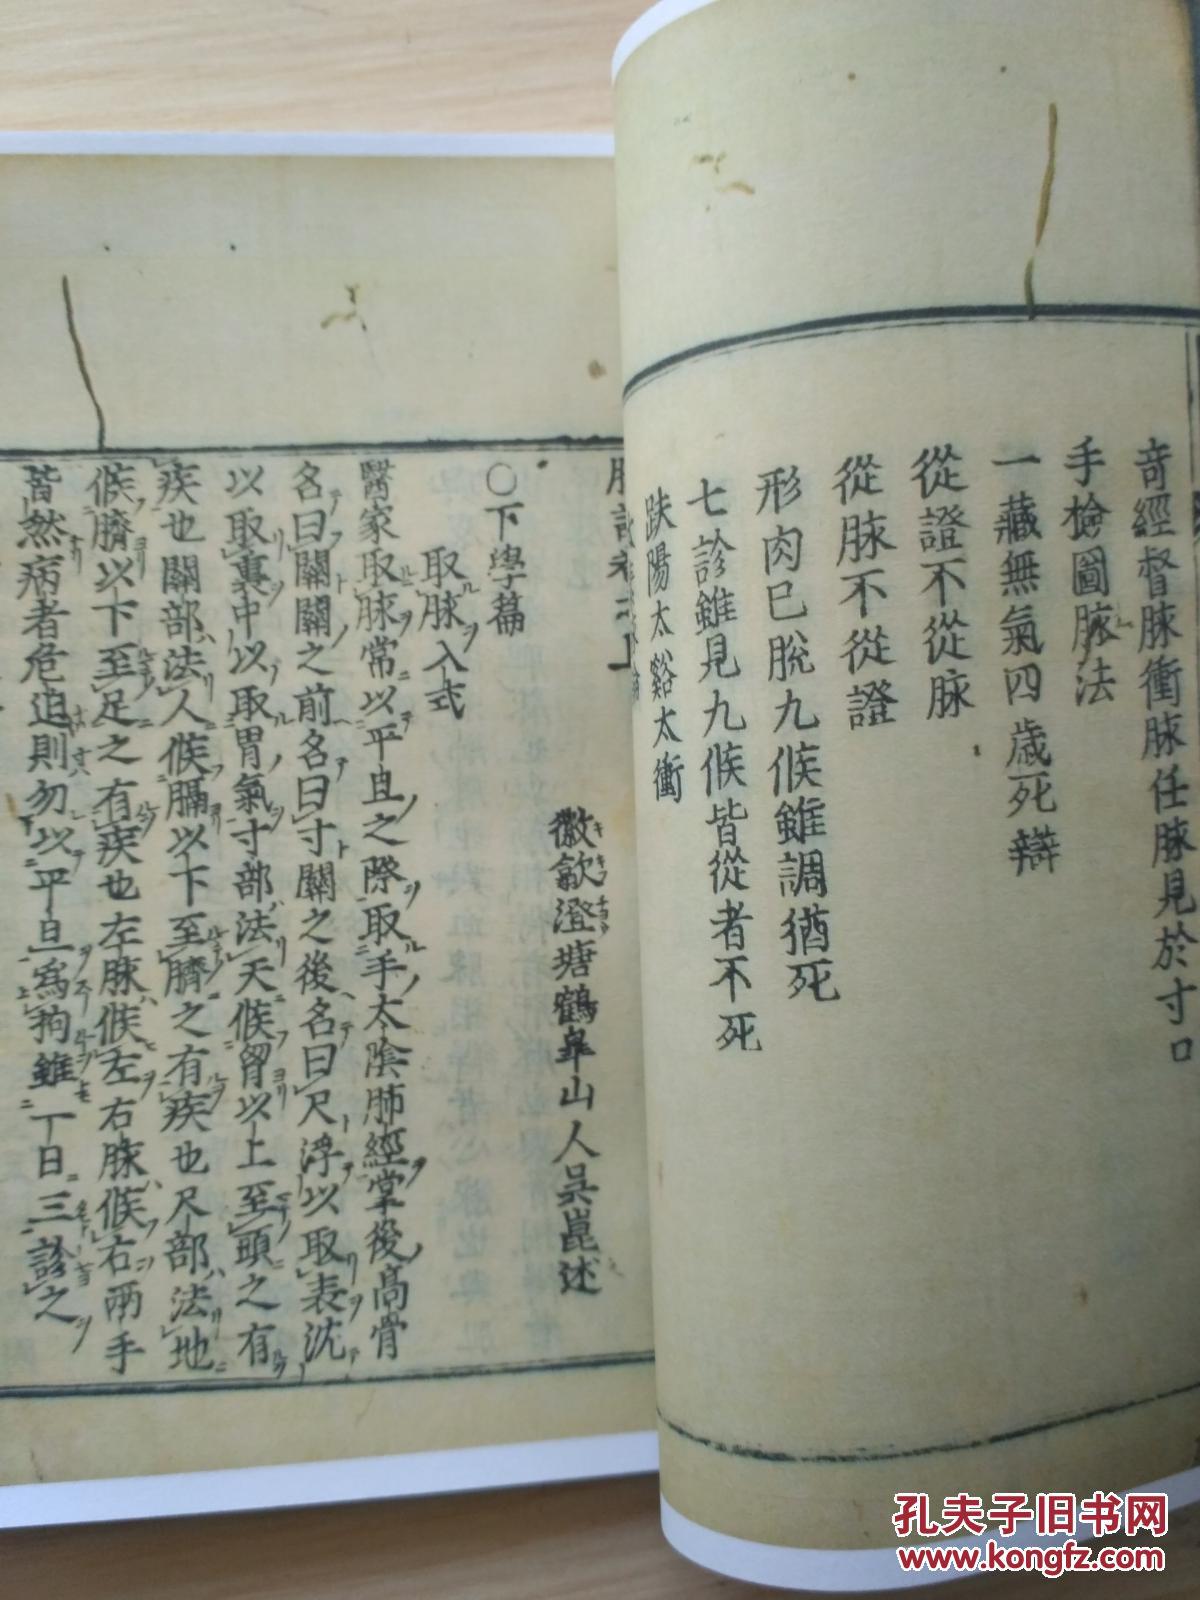 奇經督脉衝脉任脉見於寸口
手檢圖脉法
一藏無氣四歲死辯
從證不從脉
從脉不從證
形肉巳脫九候雖調猶死
七診雖見九候皆從者不死
趺陽太谿太衝
徽歙澄塘鶴皐山人吳崑述
○下學篇
取脉入式
醫家取脉常以平旦之際取手太陰肺經掌後高骨
名曰關關之前名曰寸關之後名曰尺浮以取表沈
以取裏中以取胃氣寸部法天候胷以上至頭之有
疾也關部法人候膈以下至臍之有疾也尺部法地
候臍以下至足之有疾也左脉候左右脉候右兩手
皆然病者危迫則勿以平旦爲拘雖一日三診之
孔夫子旧书网
www.kongfz.com